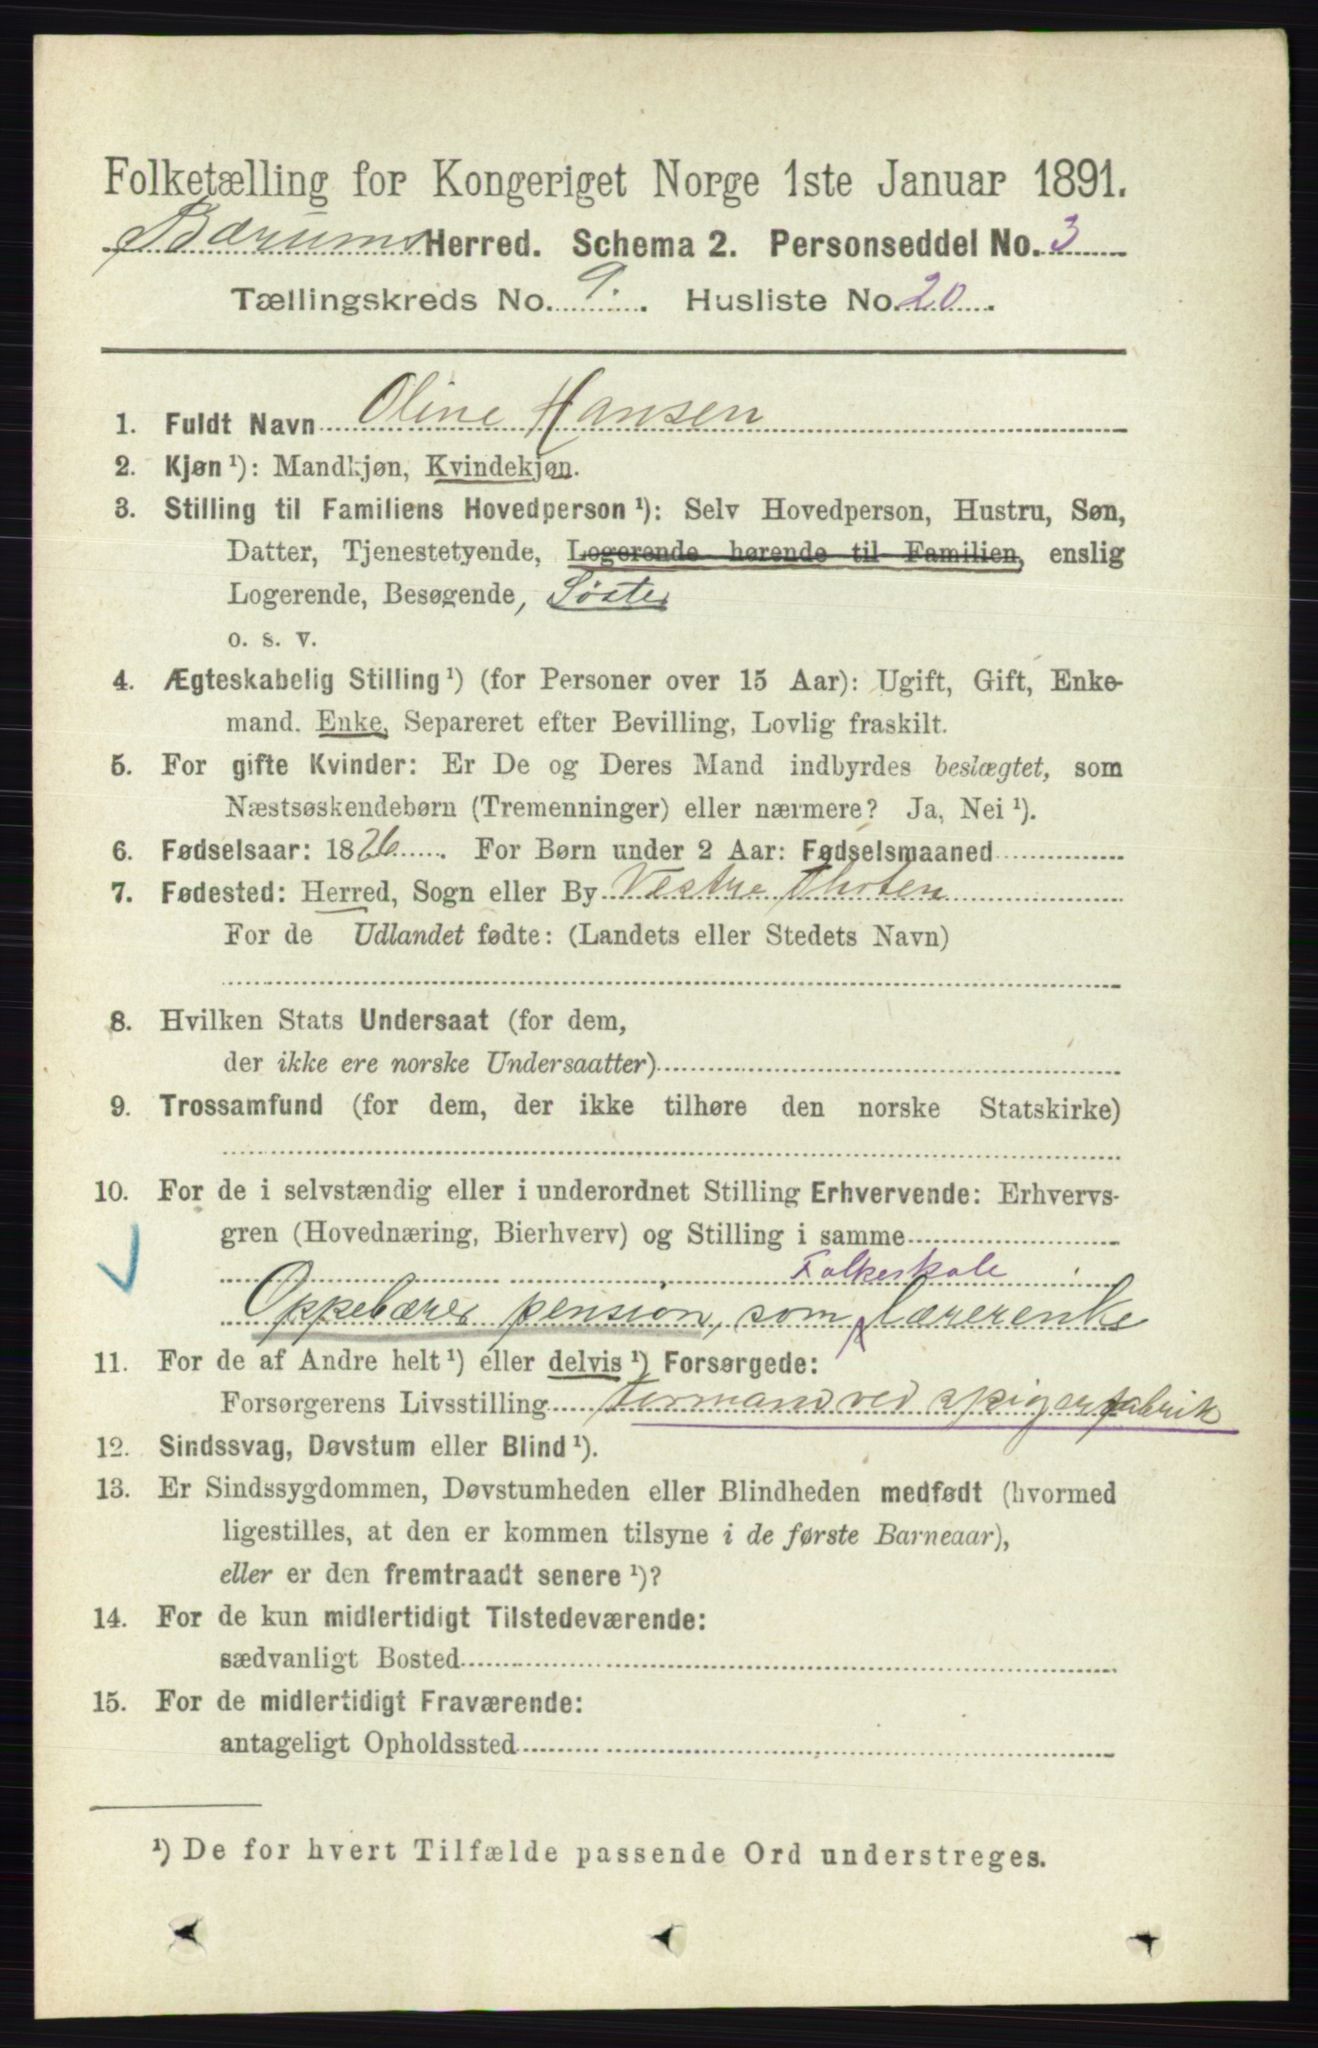 Folketælling for Kongeriget Norge 1ste Januar 1891.
Bærums Herred. Schema 2. Personseddel No. 3
Tællingskreds No. 9. Husliste No. 20.
1. Fuldt Navn Oline Hansen
2. Kjøn ¹): Mandkjøn, Kvindekjøn.
3. Stilling til Familiens Hovedperson ¹): Selv Hovedperson, Hustru, Søn,
Datter, Tjenestetyende, Logerende hørende til Familien, enslig
Logerende, Besøgende, Søster
o. s. v.
4. Ægteskabelig Stilling ¹) (for Personer over 15 Aar): Ugift, Gift, Enke-
mand. Enke, Separeret efter Bevilling, Lovlig fraskilt.
5. For gifte Kvinder: Er De og Deres Mand indbyrdes beslægtet, som
Næstsøskendebørn (Tremenninger) eller nærmere? Ja, Nei ¹).
6. Fødselsaar: 1826. For Børn under 2 Aar: Fødselsmaaned
7. Fødested: Herred, Sogn eller By Vestre Thoten
For de Udlandet fødte: (Landets eller Stedets Navn)
8. Hvilken Stats Undersaat (for dem,
der ikke ere norske Undersaatter)
9. Trossamfund (for dem, der ikke tilhøre den norske Statskirke)
10. For de i selvstændig eller i underordnet Stilling Erhvervende: Erhvervs-
gren (Hovednæring, Bierhverv) og Stilling i samme
Folkeskole
Oppebærer pension, som lærerenke
11. For de af Andre helt ¹) eller delvis ¹) Forsørgede:
Forsørgerens Livsstilling formand ved spigerfabrik
12. Sindssvag, Døvstum eller Blind ¹).
13. Er Sindssygdommen, Døvstumheden eller Blindheden medfødt (hvormed
ligestilles, at den er kommen tilsyne i de første Barneaar),
eller er den fremtraadt senere ¹)?
14. For de kun midlertidigt Tilstedeværende:
sædvanligt Bosted
15. For de midlertidigt Fraværende:
antageligt Opholdssted
¹) De for hvert Tilfælde passende Ord understreges.